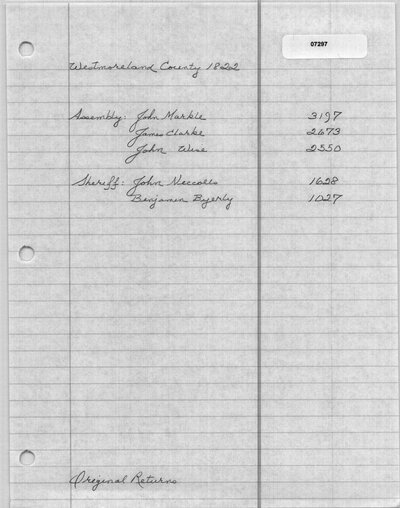 07297
Westmoreland County 1822
Assembly: John Markle 3197
James Clarke 2673
John Wise 2550
Sheriff: John Niccolls 1628
Benjamin Byerly 1027
Original Returns